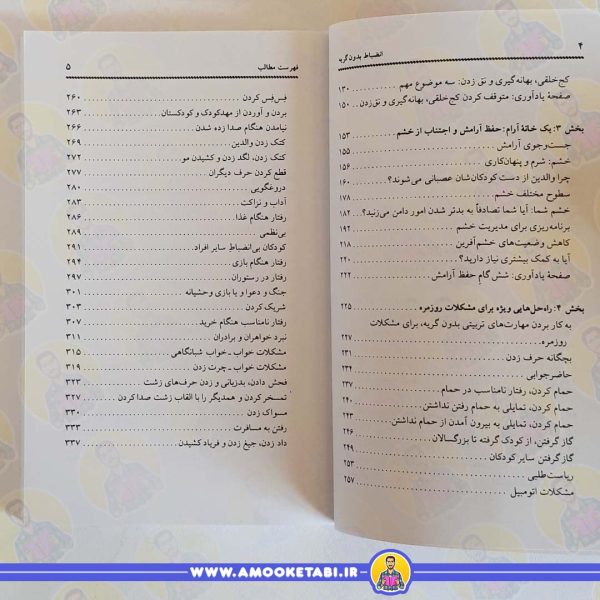 ۴ انضباط بدون گریه
کج‌خلقی، بهانه‌گیری و نق زدن: سه موضوع مهم ۱۳۰
صفحهٔ یادآوری: متوقف کردن کج‌خلقی، بهانه‌گیری و نق‌زدن ۱۵۰
بخش ۳: یک خانهٔ آرام: حفظ آرامش و اجتناب از خشم ۱۵۳
جست‌وجوی آرامش ۱۵۵
خشم: شرم و پنهان‌کاری ۱۵۶
چرا والدین از دست کودکان‌شان عصبانی می‌شوند؟ ۱۶۰
سطوح مختلف خشم ۱۷۸
خشم شما: آیا شما تصادفاً به بدتر شدن امور دامن می‌زنید؟ ۱۸۲
برنامه‌ریزی برای مدیریت خشم ۱۹۲
کاهش وضعیت‌های خشم‌آفرین ۲۱۸
آیا به کمک بیشتری نیاز دارید؟ ۲۲۱
صفحهٔ یادآوری: شش گام حفظ آرامش ۲۲۲
بخش ۴: راه‌حل‌هایی ویژه برای مشکلات روزمره ۲۲۵
به کار بردن مهارت‌های تربیتی بدون گریه، برای مشکلات
روزمره ۲۲۷
بچگانه حرف زدن ۲۳۱
حاضرجوابی ۲۳۴
حمام کردن، رفتار نامناسب در حمام ۲۳۷
حمام کردن، تمایلی به حمام رفتن نداشتن ۲۴۰
حمام کردن، تمایلی به بیرون آمدن از حمام نداشتن ۲۴۳
گاز گرفتن، از کودک گرفته تا بزرگسالان ۲۴۶
گاز گرفتن سایر کودکان ۲۴۹
ریاست‌طلبی ۲۵۳
مشکلات اتومبیل ۲۵۷
فهرست مطالب ۵
فِس‌فِس کردن ۲۶۰
بردن و آوردن از مهدکودک و کودکستان ۲۶۳
نیامدن هنگام صدا زده شدن ۲۶۶
کتک زدن والدین ۲۶۹
کتک زدن، لگد زدن و کشیدن مو ۲۷۲
قطع کردن حرف دیگران ۲۷۷
دروغگویی ۲۸۰
آداب و نزاکت ۲۸۳
رفتار هنگام غذا ۲۸۶
بی‌نظمی ۲۸۹
کودکان بی‌انضباطِ سایر افراد ۲۹۱
رفتار هنگام بازی ۲۹۴
رفتار در رستوران ۲۹۷
جنگ و دعوا و یا بازی وحشیانه ۳۰۱
شریک کردن ۳۰۳
رفتار نامناسب هنگام خرید ۳۰۷
نبرد خواهران و برادران ۳۱۱
مشکلات خواب ـ خواب شبانگاهی ۳۱۵
مشکلات خواب ـ چرت زدن ۳۱۹
فحش دادن، بدزبانی و زدن حرف‌های زشت ۳۲۳
تمسخر کردن و همدیگر را با القاب زشت صدا کردن ۳۲۷
مسواک زدن ۳۳۰
رفتن به مسافرت ۳۳۳
داد زدن، جیغ زدن و فریاد کشیدن ۳۳۷
WWW.AMOOKETABI.IR